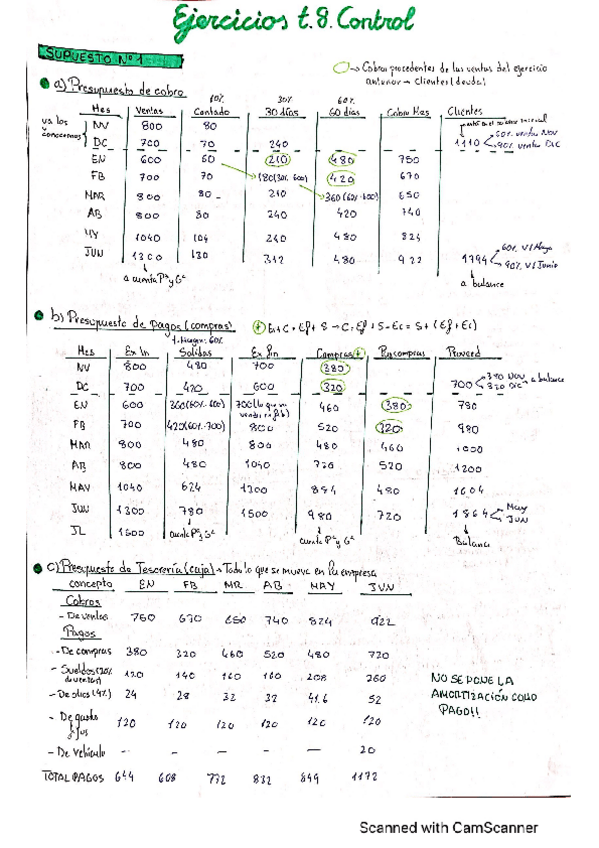 Ejercicios t.8. Control
SUPUESTO Nº 1
→ Cobros procedentes de las ventas del ejercicio
anterior → clientes (deuda)
a) Presupuesto de cobro
10% 30% 60%
Mes Ventas Contado 30 días 60 días Cobro Mes Clientes
NV 800 80
DC 700 70 240 1110 60% ventas NOV
90% ventas DIC
EN 600 60 (210) (480) 750
FB 700 70 180 (30% 600) (420) 670
MAR 800 80 210 360 (60% 600) 650
AB 800 80 240 420 740
MY 1040 104 240 480 824
JUN 1300 130 312 480 922 1794 60% V/ Mayo
90% V/ Junio
a cuenta Pª y Gª a balance
b) Presupuesto de pagos (compras) (+) Ei + C = Ef + S → C = Ef + S - Ei = S + (Ef - Ei)
1-Margen: 60%
Mes Ex In Salidas Ex Fin Compras (+) Pag compras Proveed
NV 800 480 700 (380)
DC 700 420 600 (320) 700 380 NOV
320 DIC a balance
EN 600 360 (60% 600) 700 460 (380) 780
FB 700 420 (60% 700) 800 520 (320) 980
MAR 800 480 800 480 460 1000
AB 800 480 1040 720 520 1200
MAY 1040 624 1300 884 480 1604
JUN 1300 780 1500 980 720 1864 May
JUN
JL 1500 cuenta Pª y Gª cuenta Pª y Gª Balance
c) Presupuesto de Tesorería (caja) → Todo lo que se mueve en la empresa
concepto EN FB MR AB MAY JUN
Cobros
- De ventas 750 670 650 740 824 922
Pagos
- De compras 380 320 460 520 480 720
- Sueldos (20% de ventas) 120 140 160 160 208 260
- De (4%) 24 28 32 32 41.6 52
- De gasto fijos 120 120 120 120 120 120
- De vehículo - - - - - 20
TOTAL PAGOS 644 608 772 832 849 1172
NO SE PONE LA
AMORTIZACIÓN COMO
PAGO!!
Scanned with CamScanner